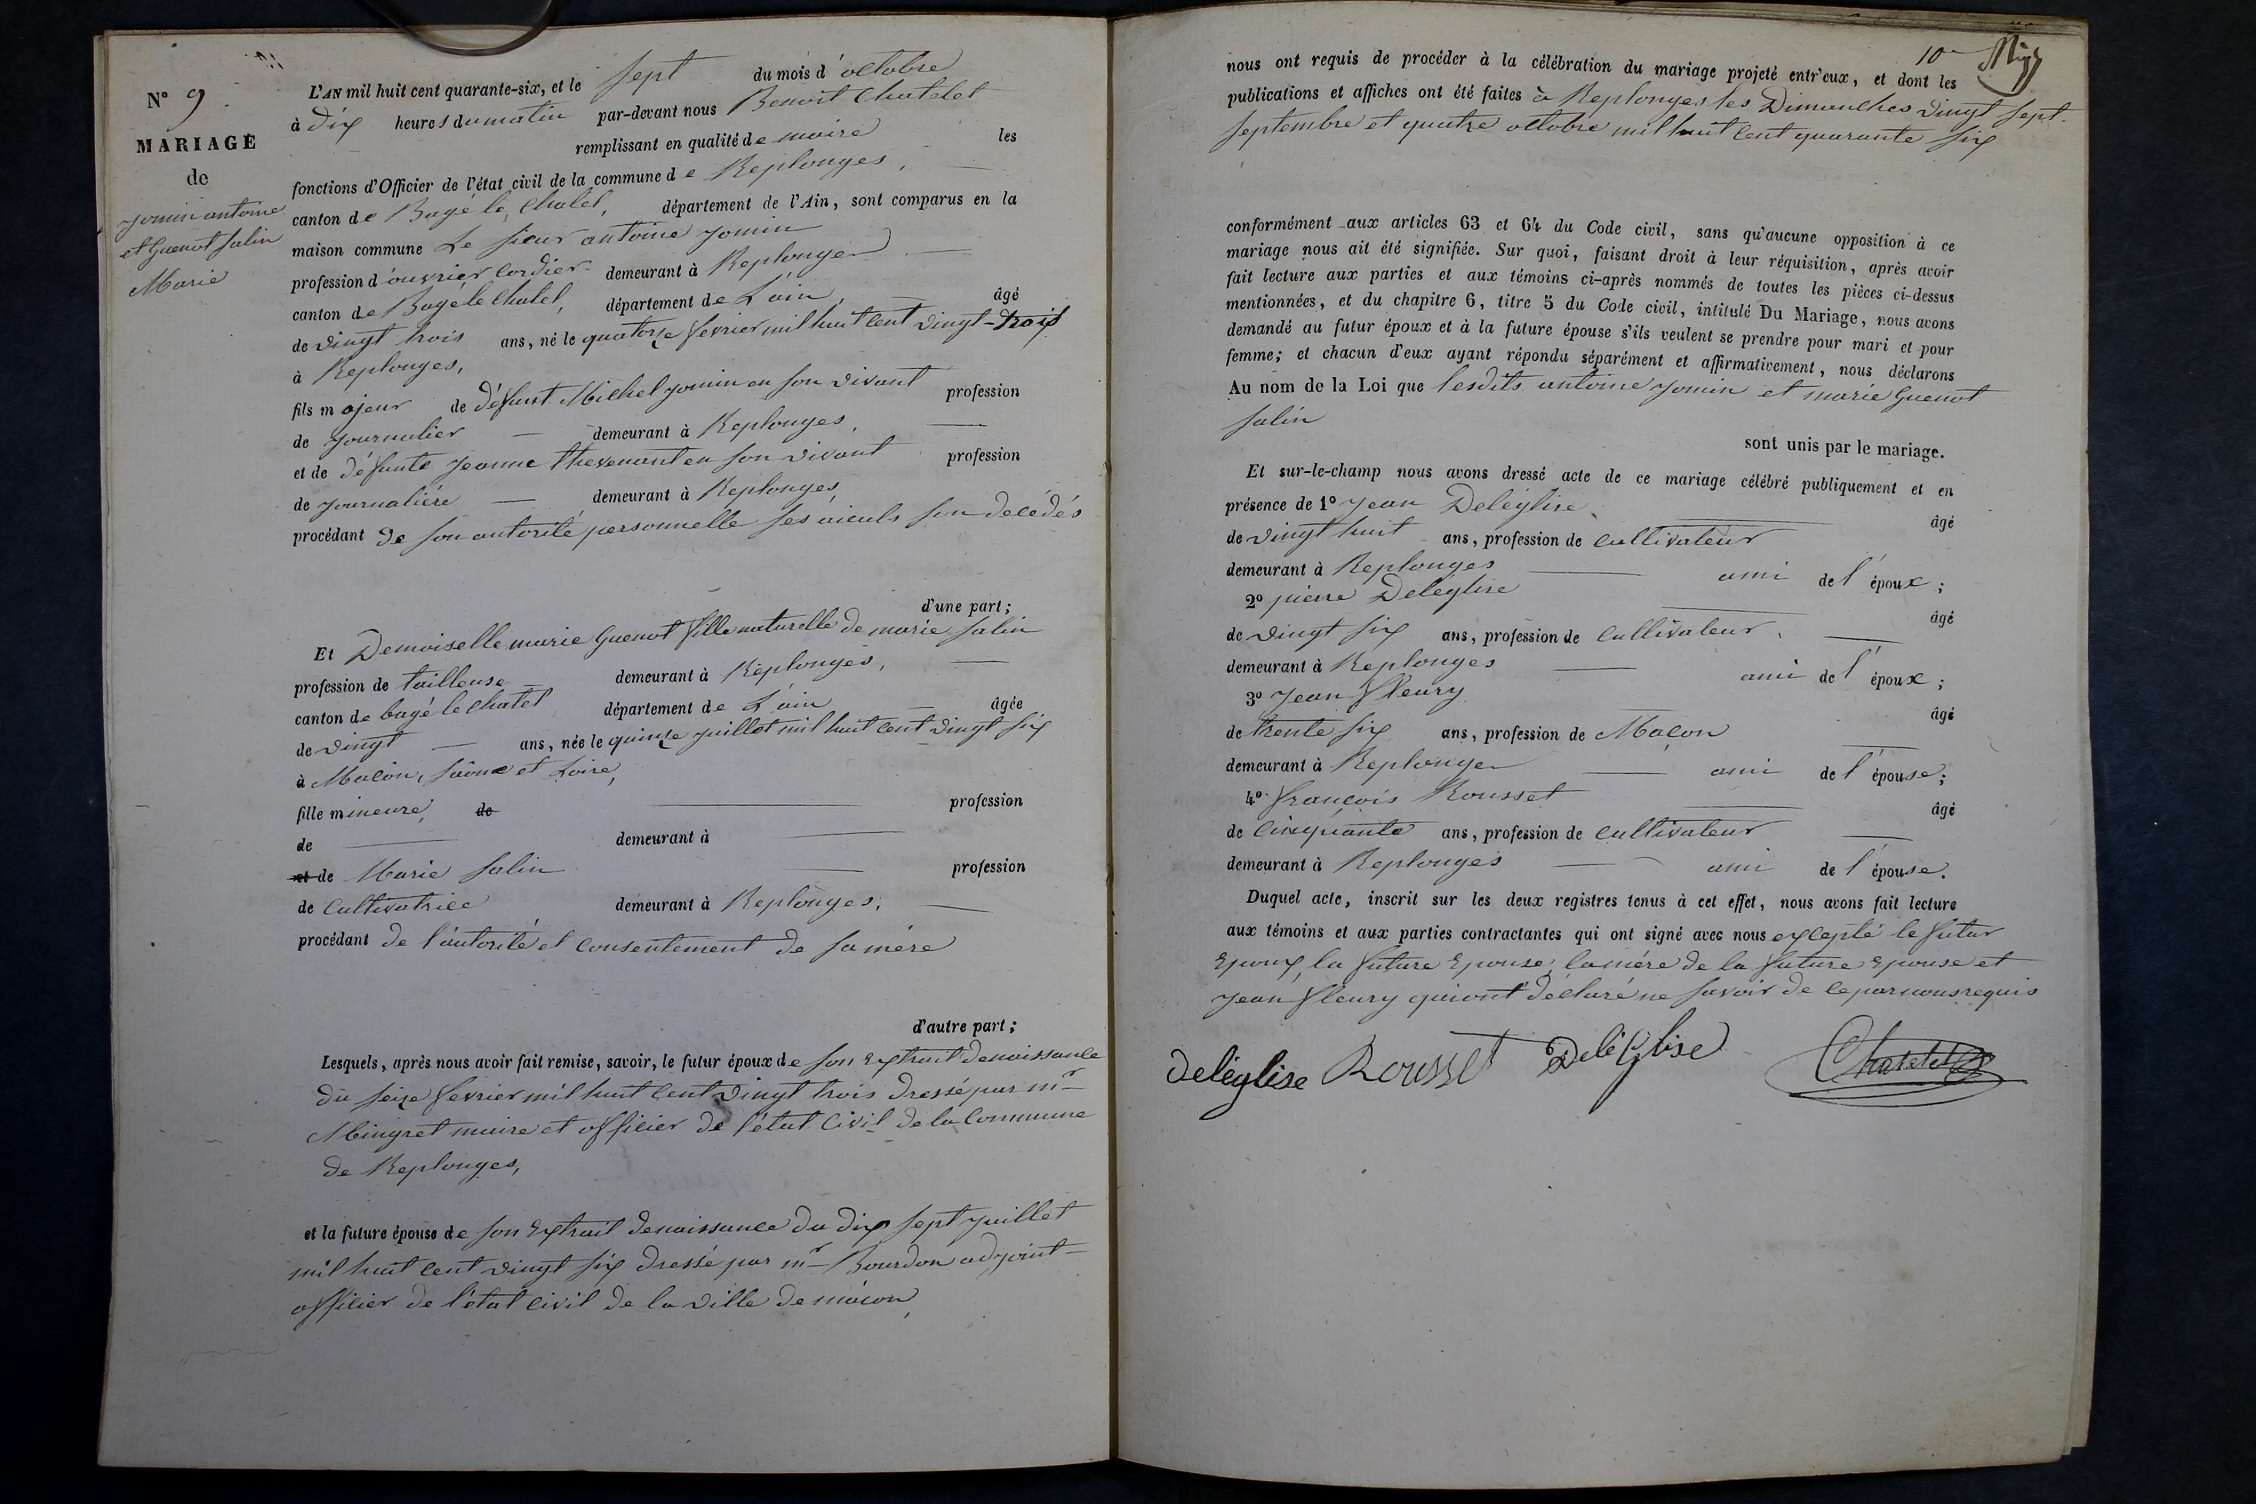 N° 9
MARIAGE
de
Jomin antoine
et Guenot Salin
Marie
L'AN mil huit cent quarante-six, et le sept du mois d'octobre
à dix heures du matin par-devant nous Benoit Chatelet
remplissant en qualité de maire les
fonctions d'Officier de l'état civil de la commune de Replonges,
canton de Bagé le Chatel, département de l'Ain, sont comparus en la
maison commune Le sieur antoine Jomin
profession d'ouvrier cordier demeurant à Replonges
canton de Bagé le Chatel, département de L'ain, âgé
de vingt trois ans, né le quatorze fevrier mil huit cent vingt-trois
à Replonges,
fils majeur de défunt Michel Jomin en son vivant profession
de journalier demeurant à Replonges,
et de défunte Jeanne thevenant en son vivant profession
de journaliére demeurant à Replonges
procédant de son autorité personnelle ses aieuls son décédés
d'une part;
Et Demoiselle marie Guenot fille naturelle de marie Salin
profession de tailleuse demeurant à Replonges,
canton de bagé le chatel département de L'ain âgée
de vingt ans, née le quinze juillet mil huit cent vingt six
à Macôn, Saône et Loire,
fille mineure, de profession
de demeurant à
et de Marie Salin profession
de Cultivatrice demeurant à Replonges,
procédant de l'autorité et consentement de sa mére
d'autre part;
Lesquels, après nous avoir fait remise, savoir, le futur époux de son Extrait de naissance
du seize fevrier mil huit cent vingt trois dressé par mr
Mingret maire et officier de l'état Civil de la Commune
de Replonges,
et la future épouse de son Extrait de naissance du dix sept juillet
mil huit cent vingt six dressé par mr Bourdon adjoint
officier de l'état civil de la ville de mâcon,
10
nous ont requis de procéder à la célébration du mariage projeté entr'eux, et dont les
publications et affiches ont été faites à Replonges les Dimanches vingt sept
septembre et quatre octobre mil huit cent quarante six
conformément aux articles 63 et 64 du Code civil, sans qu'aucune opposition à ce
mariage nous ait été signifiée. Sur quoi, faisant droit à leur réquisition, après avoir
fait lecture aux parties et aux témoins ci-après nommés de toutes les pièces ci-dessus
mentionnées, et du chapitre 6, titre 5 du Code civil, intitulé Du Mariage, nous avons
demandé au futur époux et à la future épouse s'ils veulent se prendre pour mari et pour
femme; et chacun d'eux ayant répondu séparément et affirmativement, nous déclarons
Au nom de la Loi que lesdits antoine Jomin et marie Guenot
Salin
sont unis par le mariage.
Et sur-le-champ nous avons dressé acte de ce mariage célébré publiquement et en
présence de 1° Jean Deléglise âgé
de vingt huit ans, profession de cultivateur
demeurant à Replonges ami de l'époux;
2° pierre Deléglise âgé
de vingt six ans, profession de cultivateur,
demeurant à Replonges ami de l'époux;
3° Jean fleury âgé
de trente six ans, profession de Maçon
demeurant à Replonges ami de l'épouse;
4° françois Rousset âgé
de cinquante ans, profession de cultivateur
demeurant à Replonges ami de l'épouse.
Duquel acte, inscrit sur les deux registres tenus à cet effet, nous avons fait lecture
aux témoins et aux parties contractantes qui ont signé avec nous excepté le futur
Epoux, la future Epouse, la mére de la future Epouse et
Jean fleury qui ont déclaré ne savoir de ce par nous requis
deléglise Rousset Deléglise Chatelet